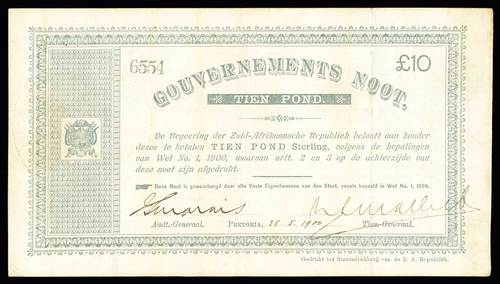 6554
£10
GOUVERNEMENTS NOOT,
TIEN POND.
De Regeering der Zuid-Afrikaansche Republiek belooft aan houder
dezes te betalen TIEN POND Sterling, volgens de bepalingen
van Wet No. 1, 1900, waarvan artt. 2 en 3 op de achterzijde van
deze noot zijn afgedrukt.
Deze Noot is gewaarborgd door alle Vaste Eigendommen van den Staat, zooals bepaald in Wet No. 1, 1900.
Audt.-Generaal.
PRETORIA, 28.5.1900
Thes.-Generaal.
Gedrukt ter Staatsdrukkery van de Z. A. Republiek.